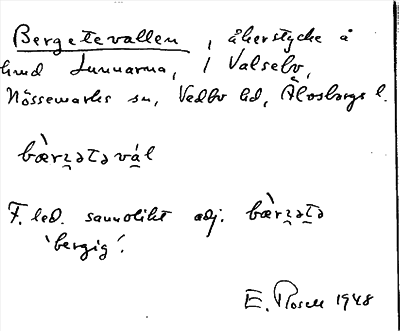 Bergetevallen, åkerstycke å
hmd Lunnarna, / Valsebo,
Nössemarks sn, Vedbo hd, Älvsborgs l.
bæ̀rʐətəvál
F. led. sannolikt adj. bæ̀rʐətə
'bergig'.
E. Rosell 1948